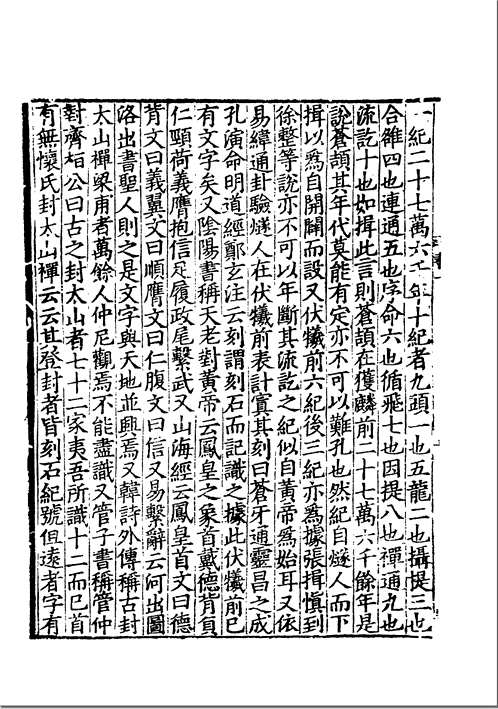 一紀二十七萬六千年十紀者九頭一也五龍二也攝提三也
合雒四也連通五也序命六也循飛七也因提八也禪通九也
流訖十也如揖此言則蒼頡在獲麟前二十七萬六千餘年是
說蒼頡其年代莫能有定亦不可以難孔也然紀自燧人而下
揖以為自開闢而設又伏犧前六紀後三紀亦為據張揖愼到
徐整等說亦不可以年斷其流訖之紀似自黃帝為始耳又依
易緯通卦驗燧人在伏犧前表計寘其刻曰蒼牙通靈昌之成
孔演命明道經鄭玄注云刻謂刻石而記識之據此伏犧前已
有文字矣又陰陽書稱天老對黃帝云鳳皇之象首戴德背負
仁頸荷義膺抱信足履政尾繫武又山海經云鳳皇首文曰德
背文曰義翼文曰順膺文曰仁腹文曰信又易繫辭云河出圖
洛出書聖人則之是文字與天地並興焉又韓詩外傳稱古封
太山禪梁甫者萬餘人仲尼觀焉不能盡識又管子書稱管仲
對齊桓公曰古之封太山者七十二家夷吾所識十二而已首
有無懷氏封太山禪云云其登封者皆刻石紀號但遠者字有